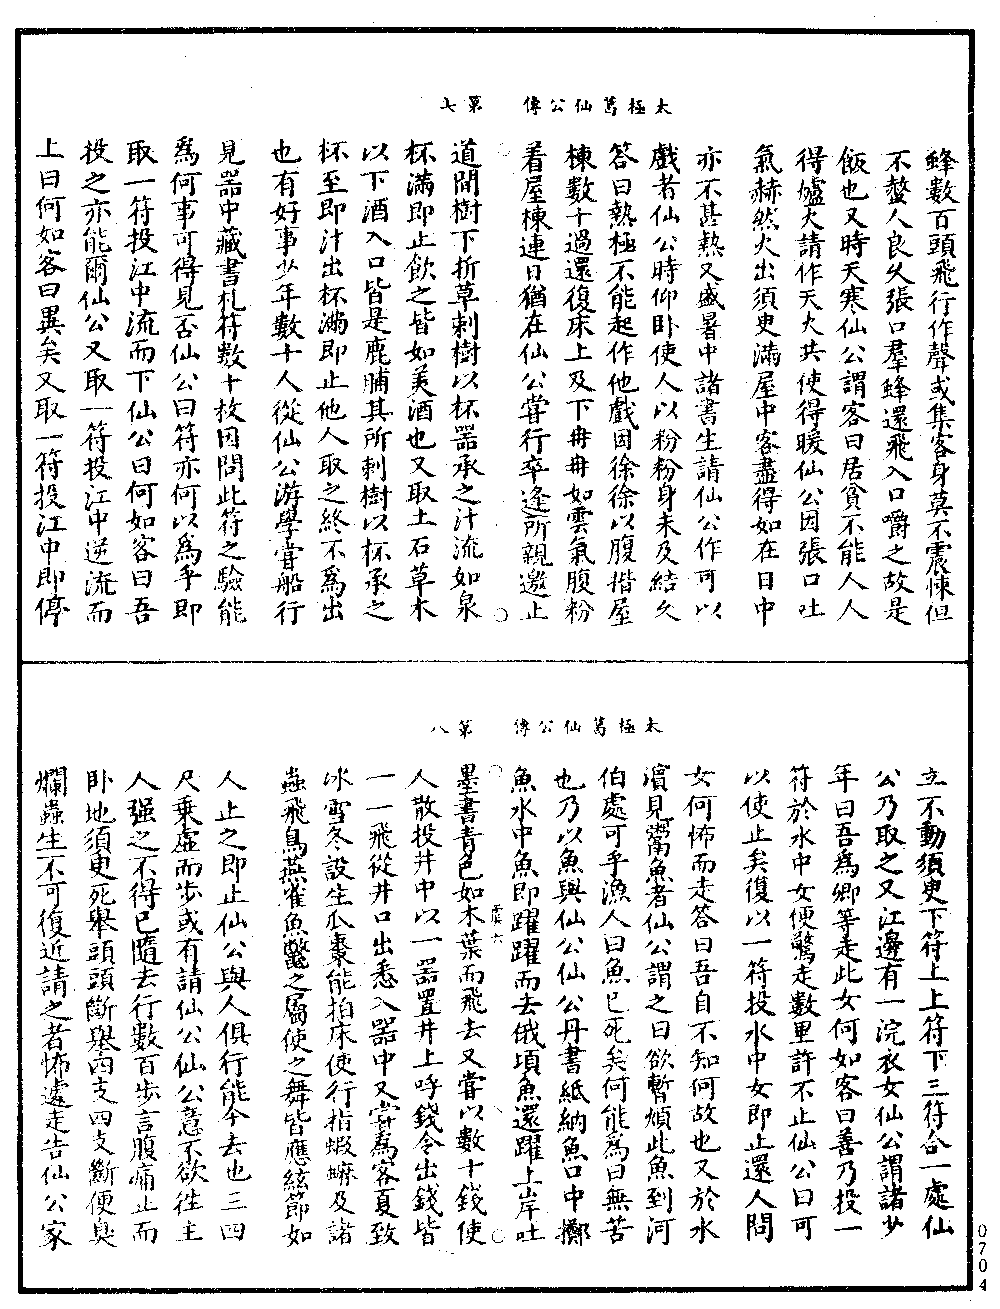 太極葛仙公傳　第七
蜂數百頭飛行作聲或集客身莫不震悚但
不螫人良久張口羣蜂還飛入口嚼之故是
飯也又時天寒仙公謂客曰居貧不能人人
得爐火請作天火共使得暖仙公因張口吐
氣赫然火出須臾滿屋中客盡得如在日中
亦不甚熱又盛暑中諸書生請仙公作可以
戲者仙公時仰卧使人以粉粉身未及結久
答曰熱極不能起作他戲因徐徐以腹揩屋
棟數十過還復床上及下冉冉如雲氣腹粉
着屋棟連日猶在仙公嘗行卒逢所親邀止
道間樹下折草刺樹以杯器承之汁流如泉
杯滿即止飲之皆如美酒也又取土石草木
以下酒入口皆是鹿脯其所刺樹以杯承之
杯至即汁出杯滿即止他人取之終不爲出
也有好事少年數十人從仙公游學嘗船行
見器中藏書札符數十枚因問此符之驗能
爲何事可得見否仙公曰符亦何以爲乎即
取一符投江中流而下仙公曰何如客曰吾
投之亦能爾仙公又取一符投江中逆流而
上曰何如客曰異矣又取一符投江中即停
太極葛仙公傳　第八
立不動須臾下符上上符下三符合一處仙
公乃取之又江邊有一浣衣女仙公謂諸少
年曰吾爲卿等走此女何如客曰善乃投一
符於水中女便驚走數里許不止仙公曰可
以使止矣復以一符投水中女即止還人問
女何怖而走答曰吾自不知何故也又於水
濵見鬻魚者仙公謂之曰欲暫煩此魚到河
伯處可乎漁人曰魚已死矣何能爲曰無苦
也乃以魚與仙公仙公丹書紙納魚口中擲
魚水中魚即躍躍而去俄頃魚還躍上岸吐
虞六
墨書青色如木葉而飛去又嘗以數十錢使
人散投井中以一器置井上呼錢令出錢皆
一一飛從井口出悉入器中又嘗爲客夏致
冰雪冬設生瓜棗能拍床使行指蝦蟆及諸
蟲飛鳥燕雀魚鼈之屬使之舞皆應絃節如
人止之即止仙公與人俱行能令去地三四
尺乘虛而步或有請仙公仙公意不欲徃主
人强之不得已隨去行數百步言腹痛止而
卧地須臾死舉頭頭斷舉四支四支斷便臭
爛蟲生不可復近請之者怖遽走告仙公家
0704